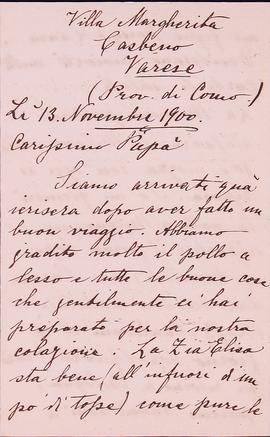 Villa Margherita
Casbeno
Varese
(Prov. di Como.)
Li 13. Novembre 1900.
Carissimo Papà
Siamo arrivati quà
ierisera dopo aver fatto un
buon viaggio. Abbiamo
gradito molto il pollo a
lesso e tutte le buone cose
che gentilmente ci hai
preparato per la nostra
colazione. La Zia Elisa
sta bene (all'infuori d'un
po' di tosse) come pure le